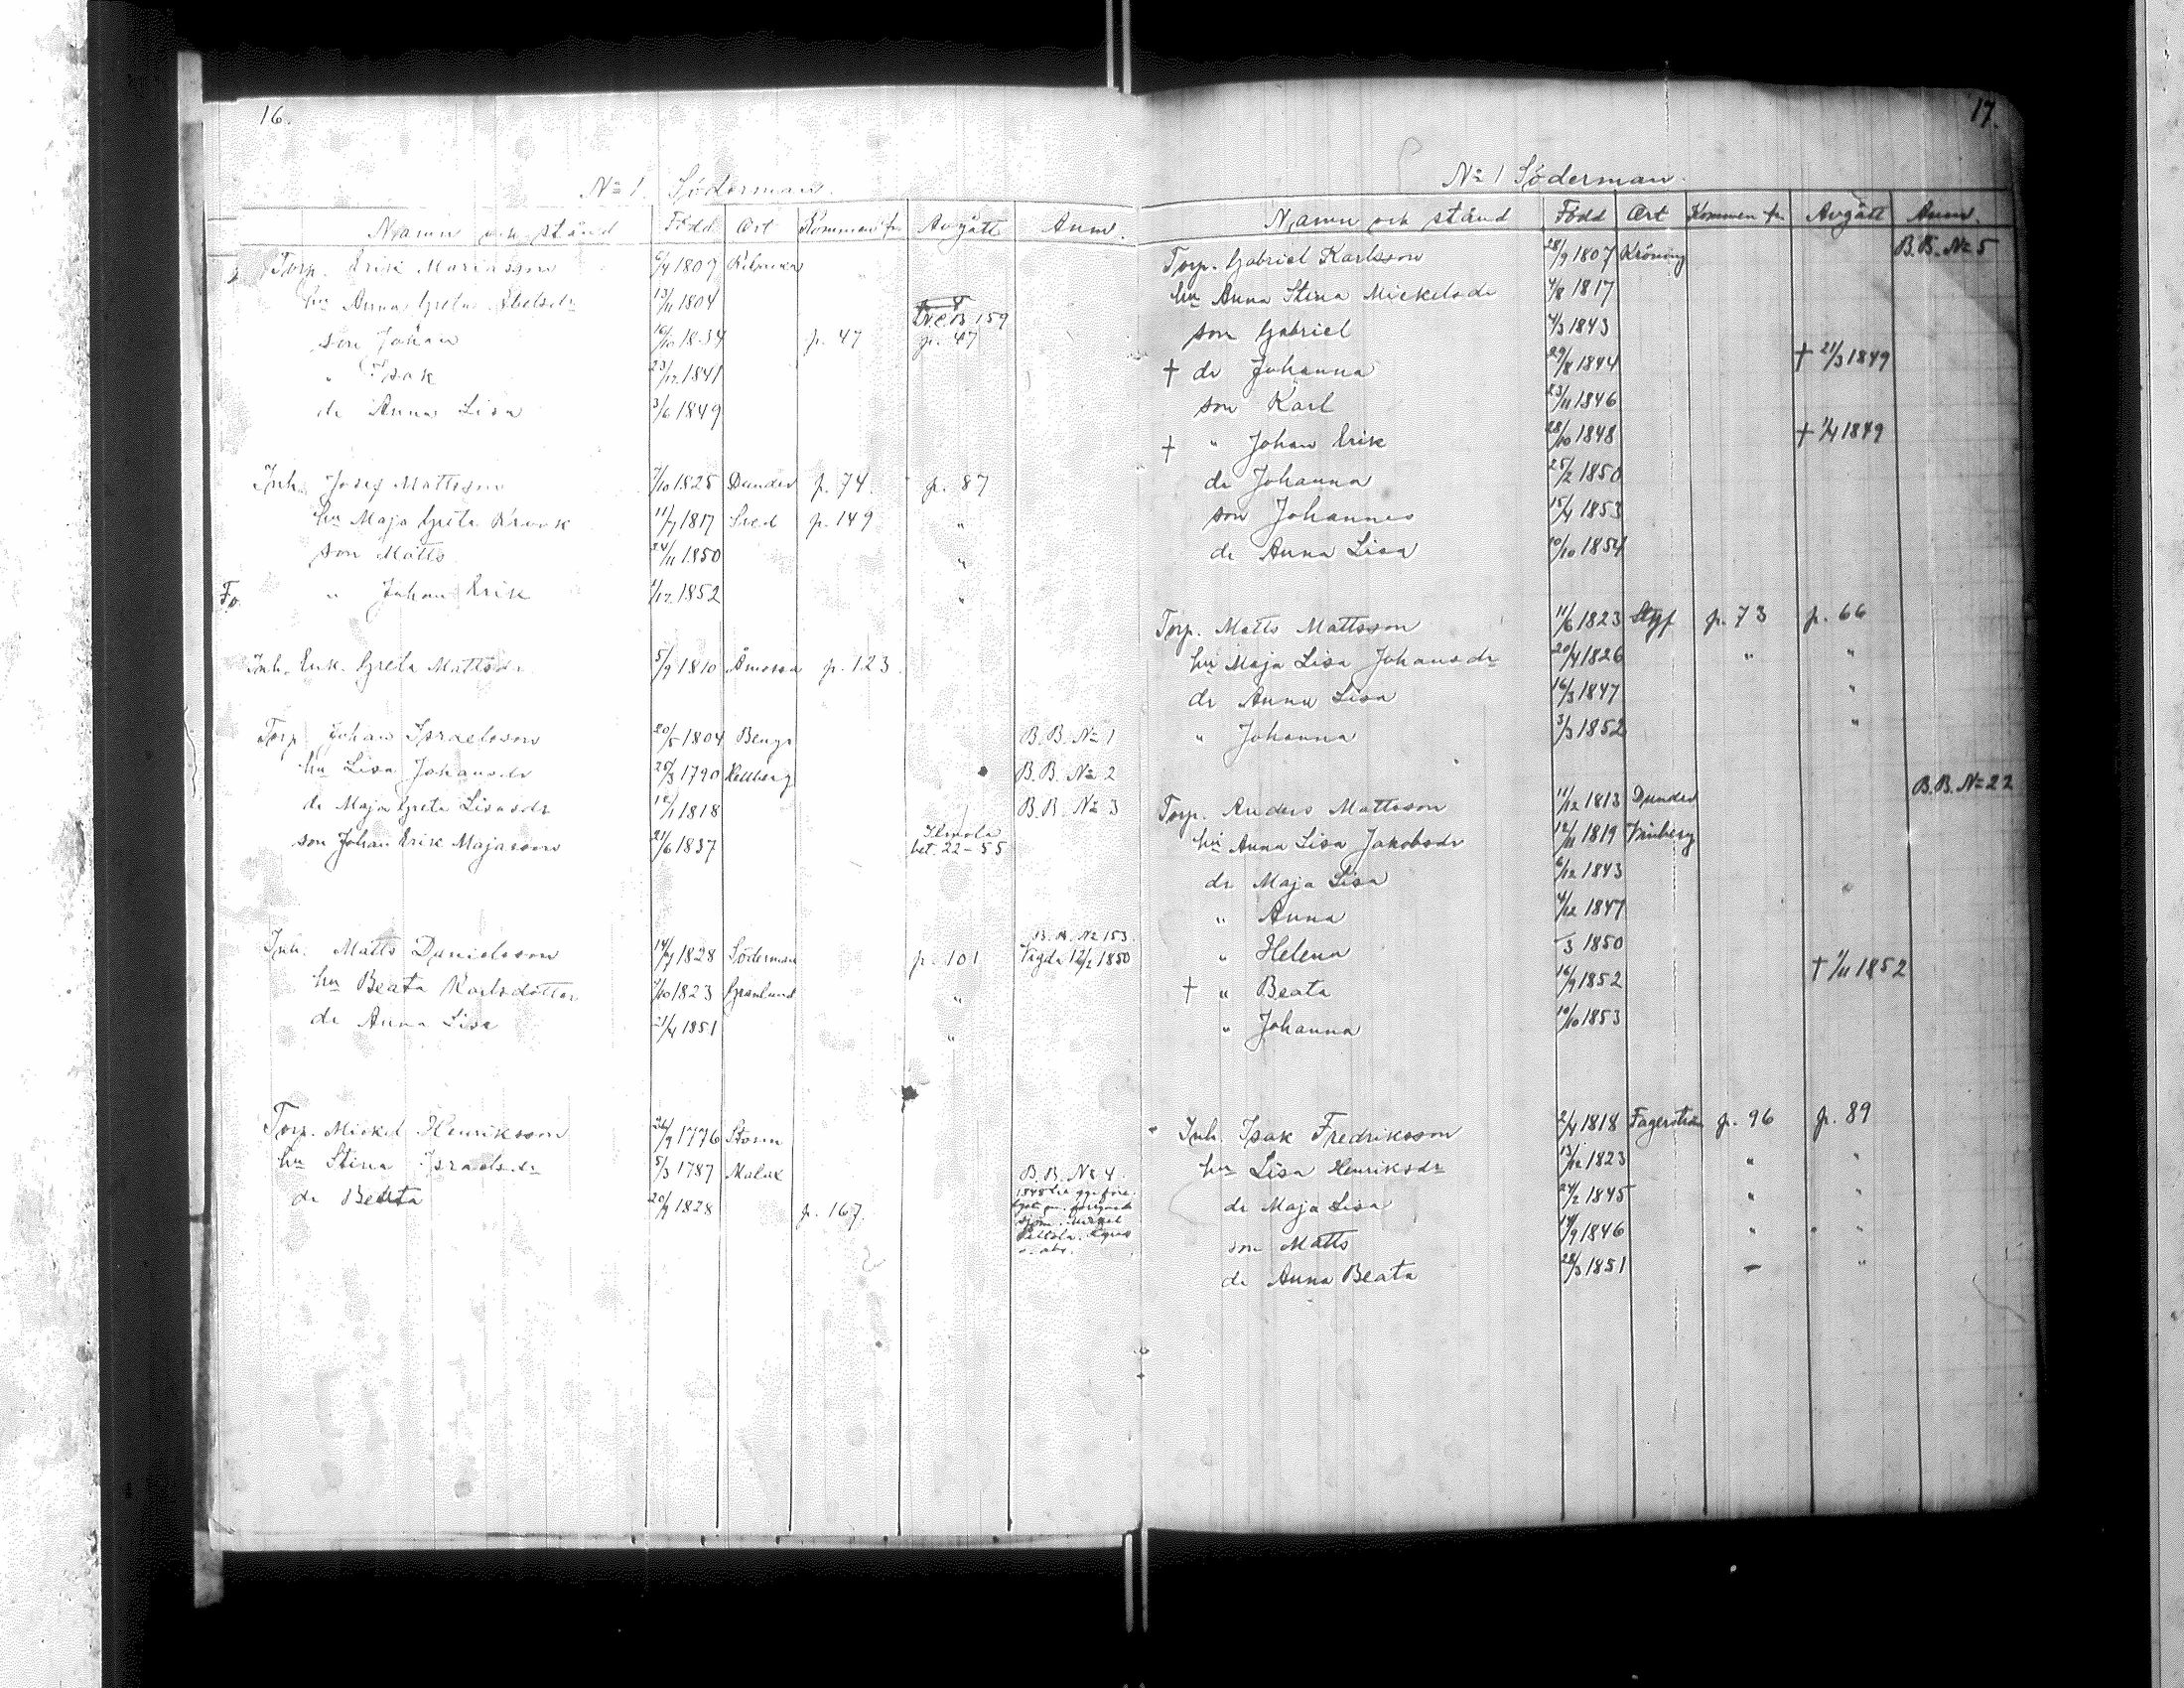 16.
No 1. Söderman.
Namn och stånd Född Ort Kommen fr Avgått Anm.
Torp. Erik Mariasson 1809
hu Anna Greta 13/11 1804
B 159
son Johan 1834 p. 47 p. 47
" Isak 23/12 1841
dr Anna Lisa 3/6 1849
Inh. Josef Mattsson 7/10 1825 Dunder p. 74. p. 87
hu Maja Greta Krook 11/7 1817 Sved p. 149 "
son Matts 24/11 1850 "
Fo. " Johan Erik 1/12 1852 "
Inh. Enk. Greta Mattsdr 5/9 1810 Åmossa p. 123.
Torp Johan Israelsson 20/5 1804 Bengs B.B. No 1
hu Lisa Johansdr 1790 Kellberg B.B. No 2
dr Maja Greta Lisasdr 1818 B.B. No 3
son Johan Erik Majasson 21/6 1837 Ilmola
bet. 22-55
B.B. No 153.
Inh. Matts Danielsson 14/7 1828 Söderman p. 101 Vigda 12/2 1850
hu Beata Karlsdotter 7/10 1823 Granlund "
dr Anna Lisa 1851 "
Torp. Mickel Henriksson 26/9 1776 Storm
hu Stina Israelsdr 5/3 1787 Malax B.B. No 4.
dr Beata 20/9 1828 p. 167.
17.
No 1 Söderman.
Namn och stånd Född Ort Kommen fr Avgått Anm.
Torp. Gabriel Karlsson 28/9 1807 Kröning B.B. No 5
hu Anna Stina Mickelsdr 4/8 1817
son Gabriel 4/3 1843
† dr Johanna 29/8 1844 † 21/3 1849
son Karl 23/11 1846
† " Johan Erik 28/10 1848 † 1/4 1849
dr Johanna 25/2 1850
son Johannes 15/4 1853
dr Anna Lisa 10/10 1854
Torp. Matts Mattsson 11/6 1823 Styf p. 73 p. 66
hu Maja Lisa Johansdr 20/4 1826 " "
dr Anna Lisa 16/3 1847 "
" Johanna 3/3 1852 "
Torp. Anders Mattsson 11/12 1813 Dunder B.B. No 22
hu Anna Lisa Jakobsdr 12/11 1819 Vinberg
dr Maja Lisa 6/12 1843
" Anna 4/12 1847
" Helena 3 1850
† " Beata 16/9 1852 † 1/11 1852
" Johanna 10/10 1853
Inh. Isak Fredriksson 2/4 1818 Fagerström p. 96 p. 89
hu Lisa Henriksdr 13/12 1823 " "
dr Maja Lisa 24/2 1845 " "
son Matts 14/9 1846 " "
dr Anna Beata 28/3 1851 - "